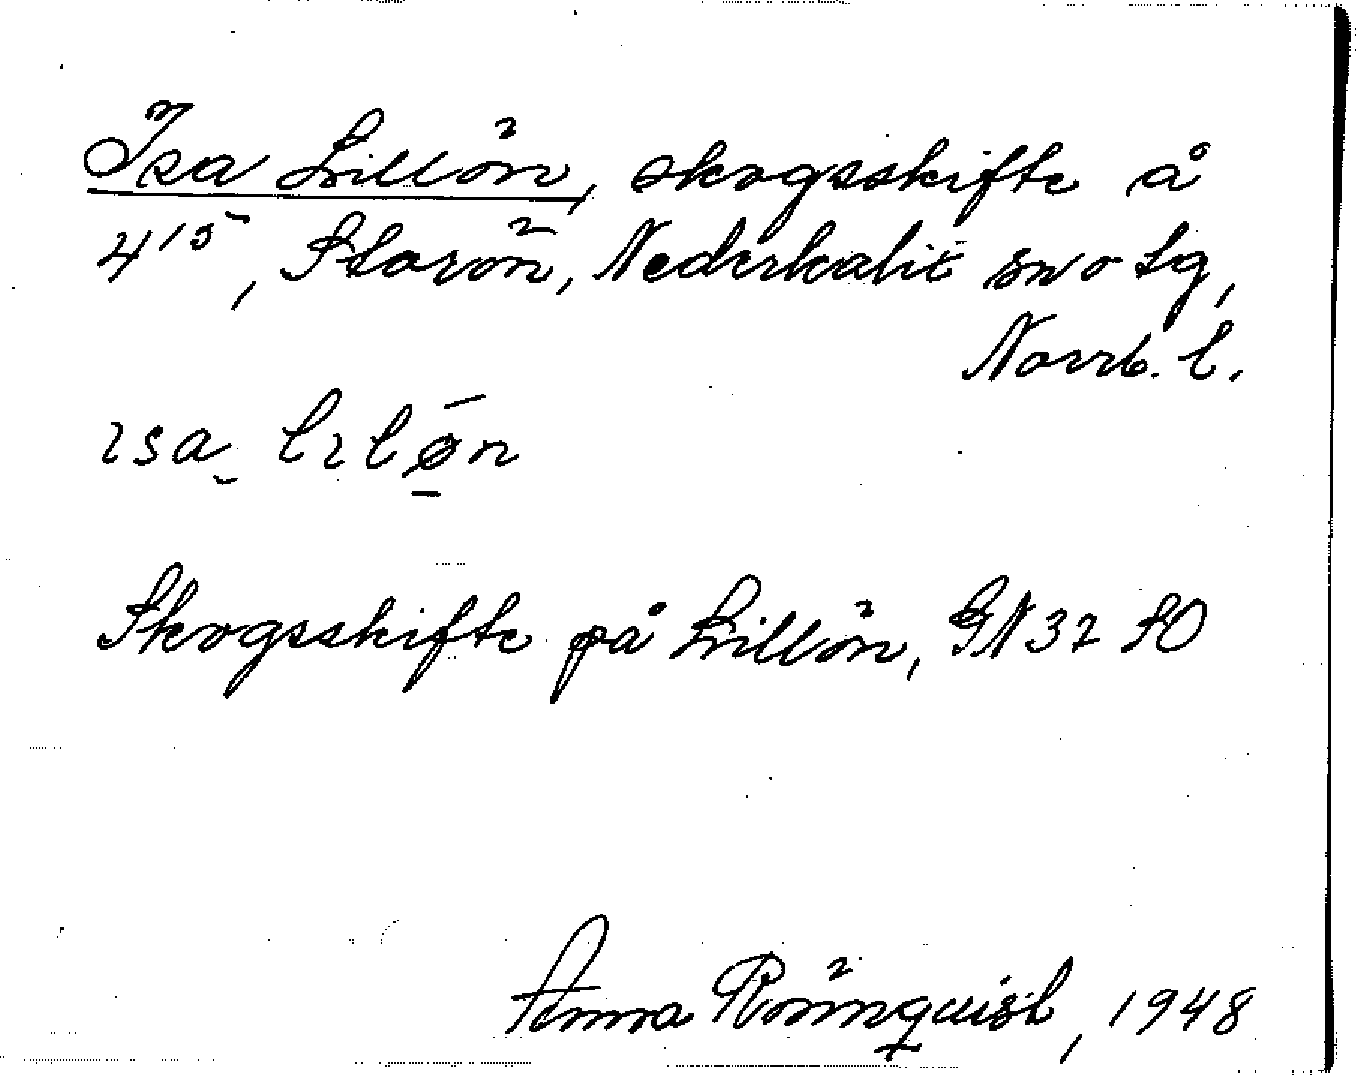 Isa Lillön, skogsskifte å
4¹⁵, Storön, Nederkalix sn o tg,
Norrb. l.
ɩsa lɩløn
Skogsskifte på Lillön, GN 32 SO
Anna Rönnquist, 1948